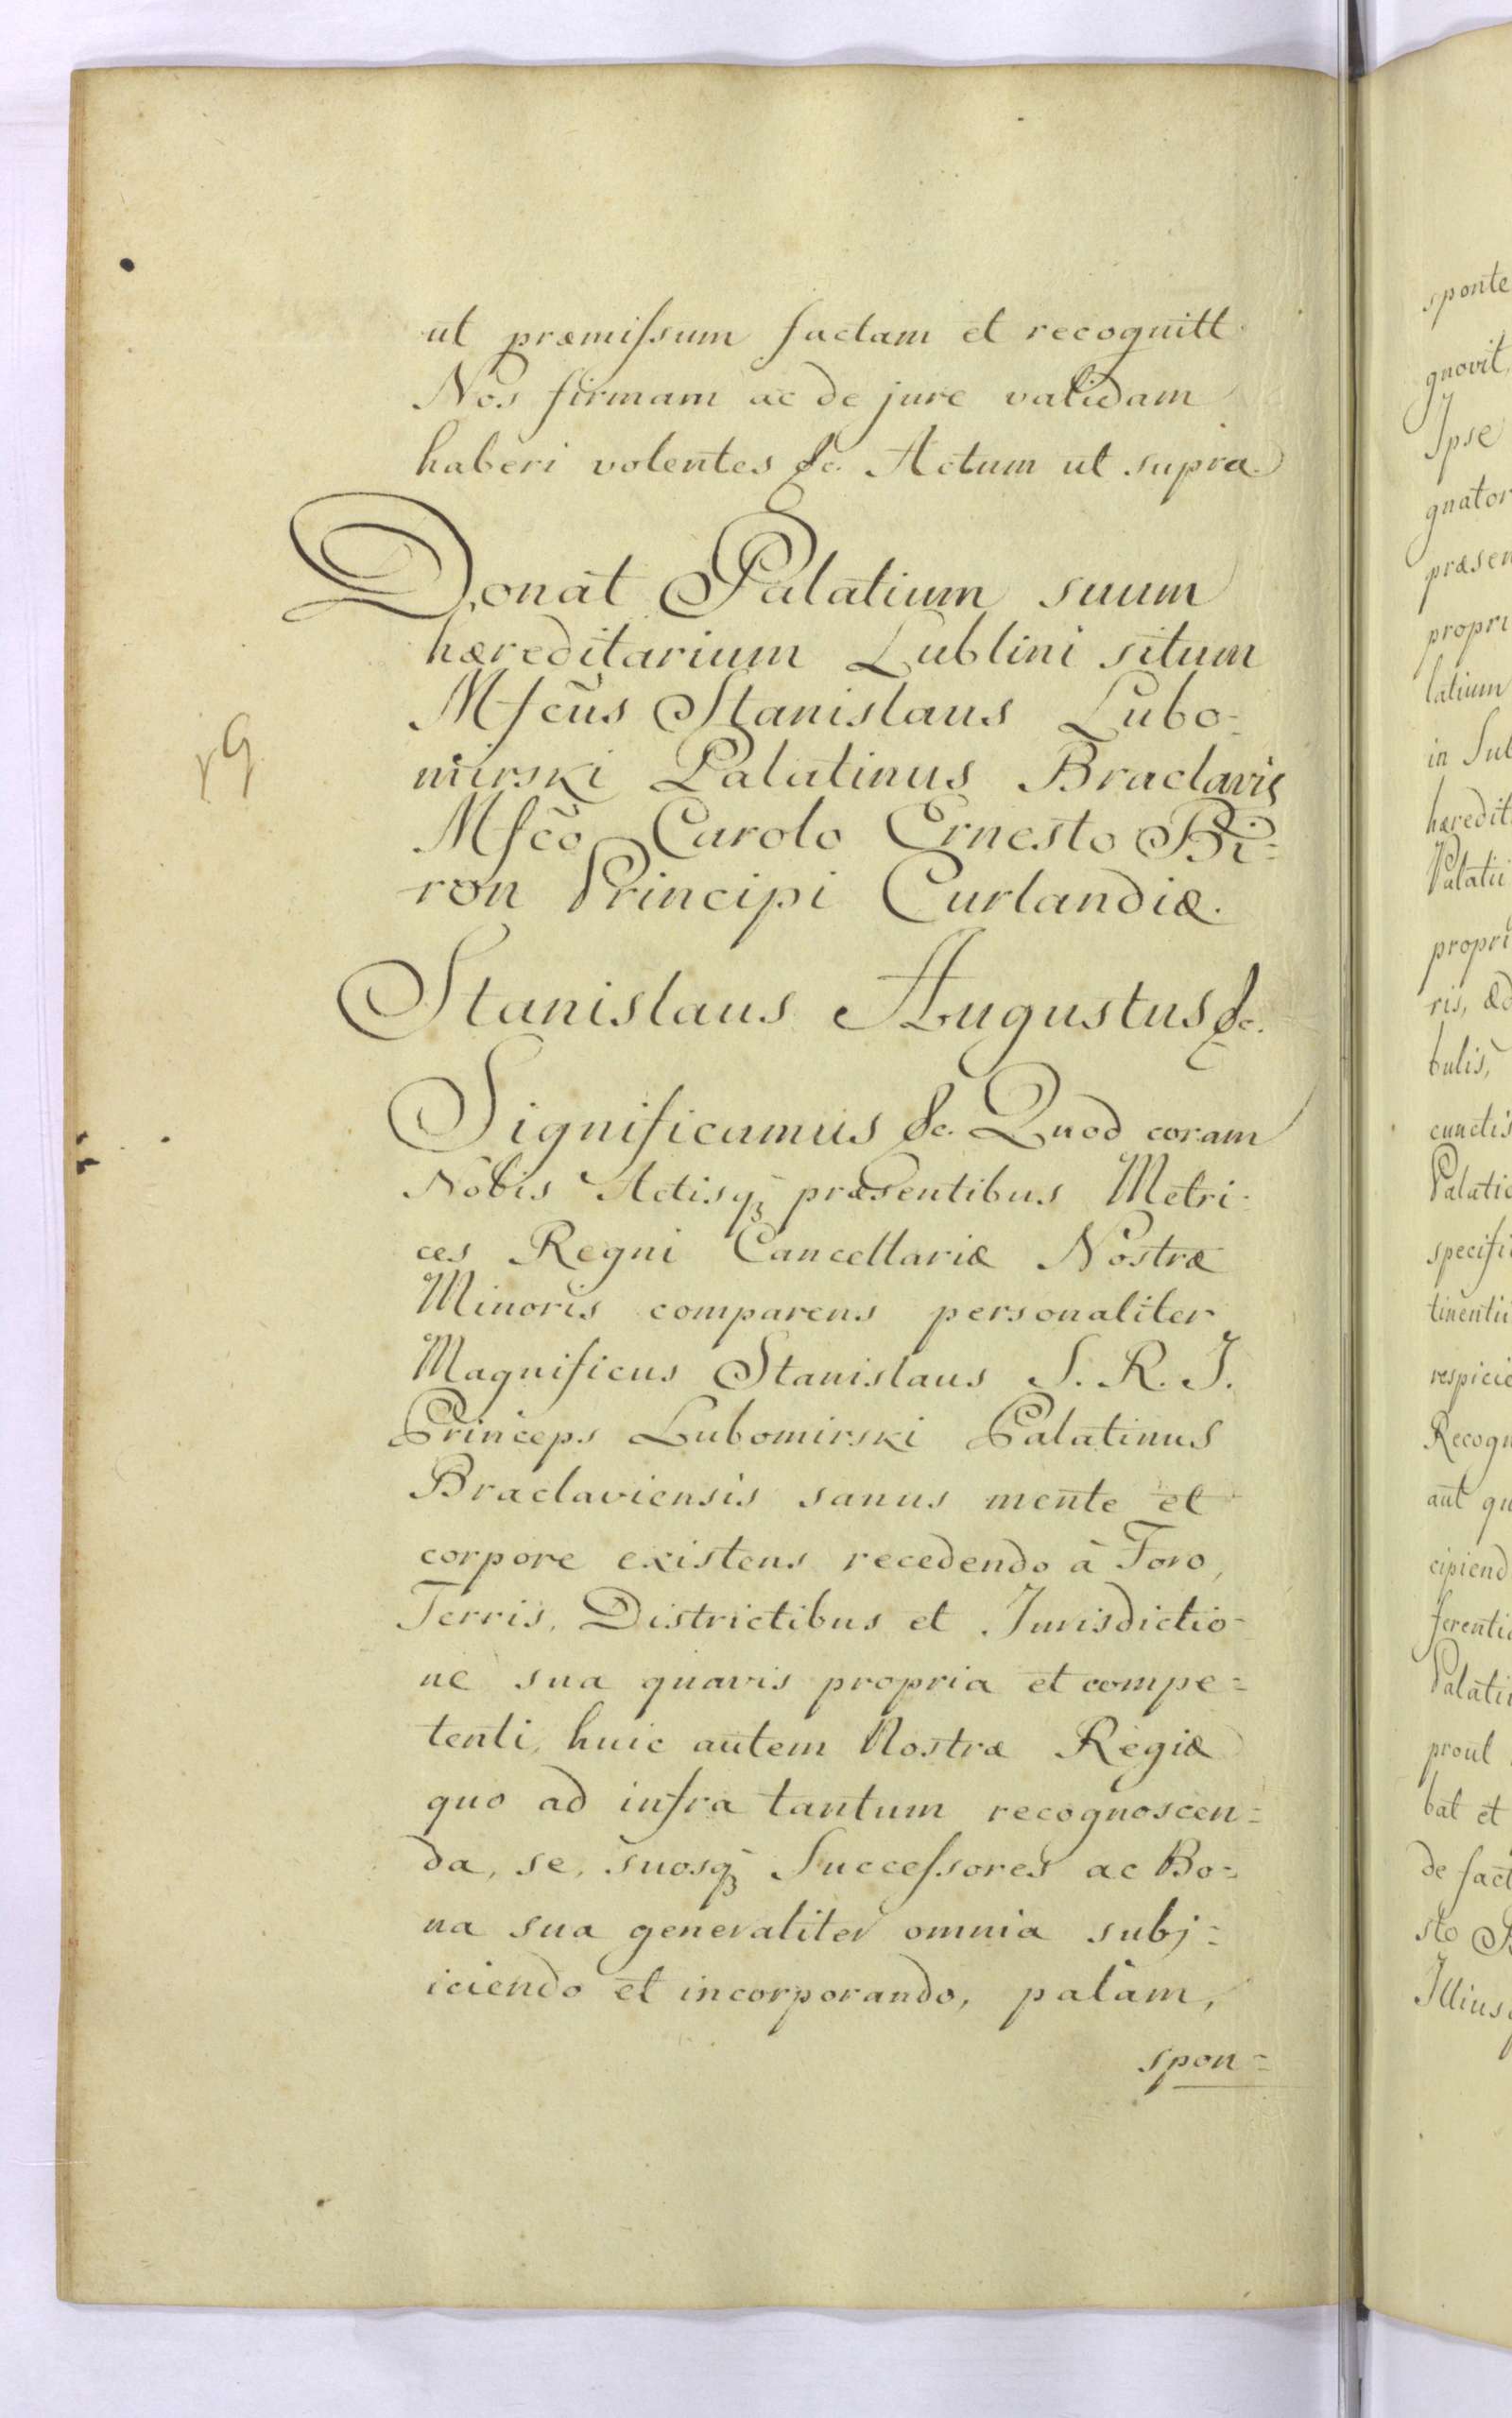 ut præmissum factam et recognitt
Nos firmam ac de jure validam
haberi volentes &c. Actum ut supra.
Donat Palatium suum
hæreditarium Lublini situm
Mfcus Stanislaus Lubo-
mirski Palatinus Braclavis
Mfco Carolo Ernesto Bi-
ron Principi Curlandiæ.
Stanislaus Augustus &c.
Significamus &c. Quod coram
Nobis Actisq3 præsentibus Metri-
ces Regni Cancellariæ Nostræ
Minoris comparens personaliter
Magnificus Stanislaus S. R. I.
Princeps Lubomirski Palatinus
Braclaviensis sanus mente et
corpore existens recedendo à Foro,
Terris, Districtibus et Jurisdictio-
ne sua quavis propria et compe=
tenti, huic autem Nostræ Regiæ
quo ad infra tantum recognoscen=
da, se, suosq3 Successores ac Bo=
na sua generaliter omnia subj=
iciendo et incorporando, palam,
spon=
sponte
gnovit,
Ipse
gnator
præsen
propri
latium
in Sub
hæredit
Palatii
propri
ris, æd
bulis,
cunctis
Palatio
specifi
tinentii
respicie
Recogn
aut qu
cipiend
ferentia
Palatii
prout
bat et
de fact
sto B
Illius